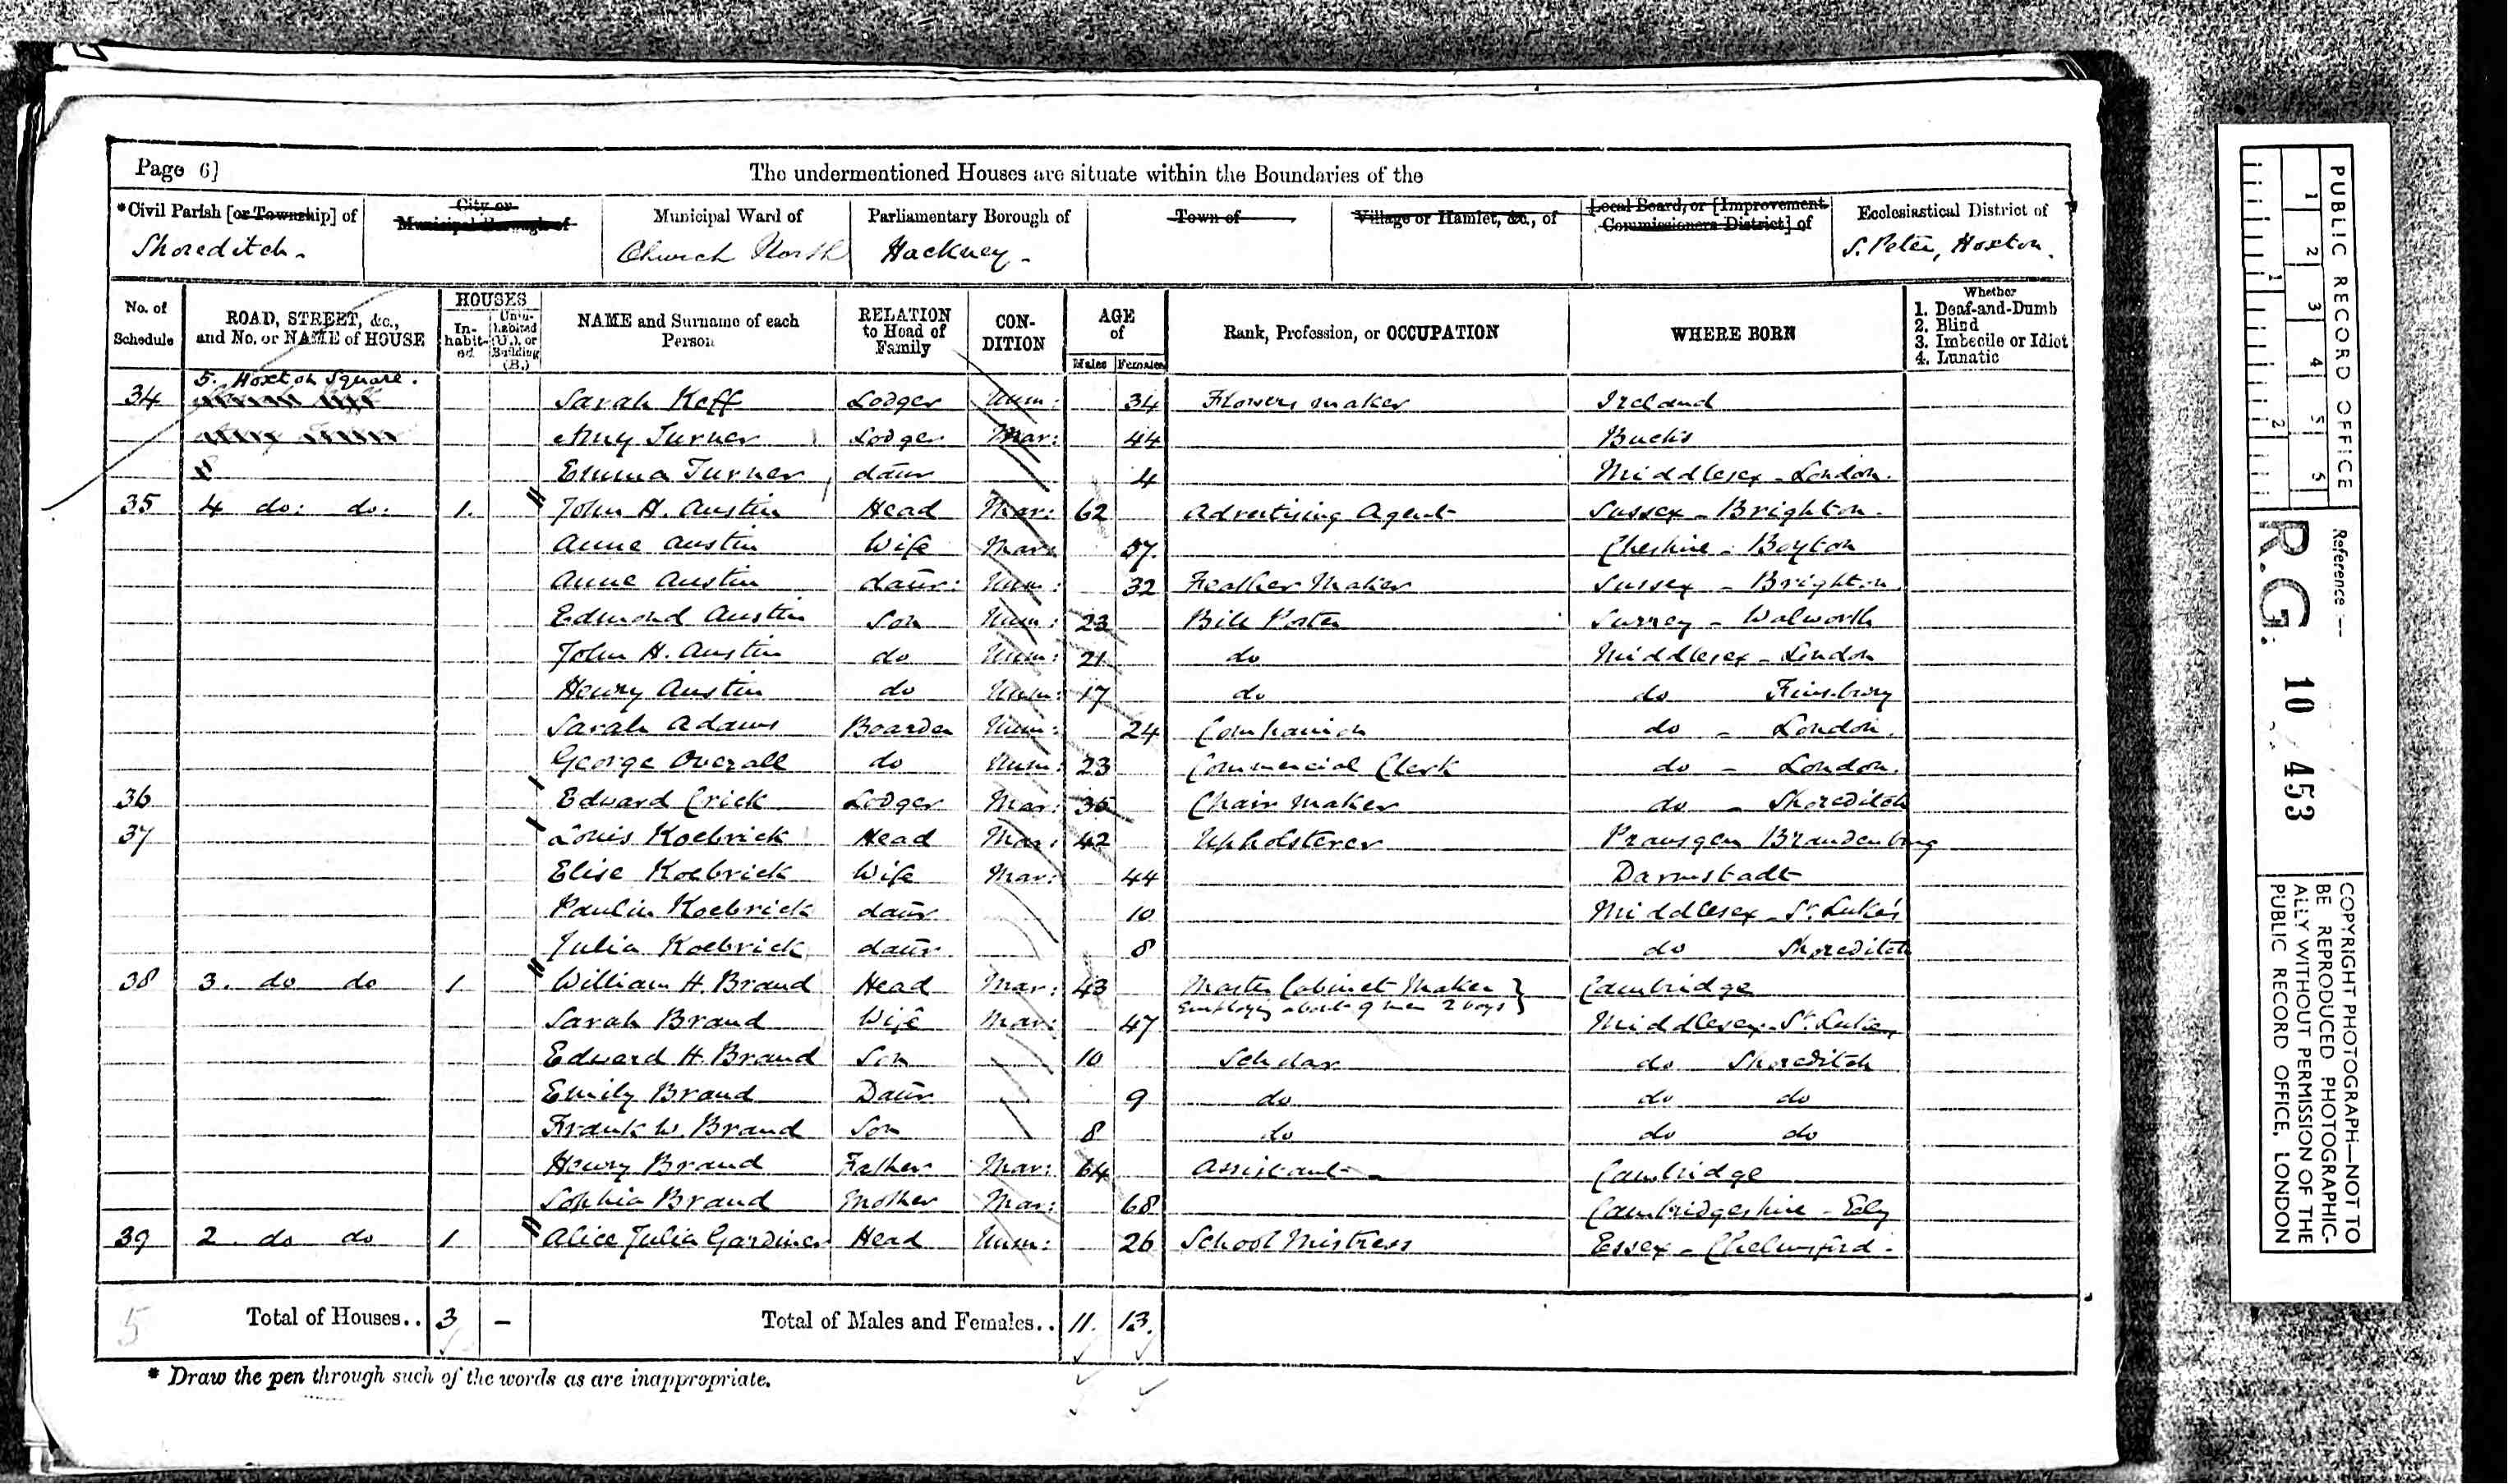 Page 6]
The undermentioned Houses are situate within the Boundaries of the
*Civil Parish [or Township] of
City or Municipal Borough of
Municipal Ward of
Parliamentary Borough of
Town of
Village or Hamlet, &c., of
Local Board, or [Improvement Commissioners District] of
Ecclesiastical District of
Shoreditch.
Church North
Hackney.
S. Peter, Hoxton.
No. of Schedule
ROAD, STREET, &c., and No. or NAME of HOUSE
HOUSES
In-habit-ed
Unin-habited (U.), or Building (B.)
NAME and Surname of each Person
RELATION to Head of Family
CON-DITION
AGE of
Males Females
Rank, Profession, or OCCUPATION
WHERE BORN
Whether
1. Deaf-and-Dumb
2. Blind
3. Imbecile or Idiot
4. Lunatic
5. Hoxton Square.
34 Sarah Keff Lodger Unm: 34 Flowers maker Ireland
Amy Turner Lodger Mar: 44 Bucks
Emma Turner daur 4 Middlesex - London.
35 4 do: do: 1. John H. Austin Head Mar: 62 Advertising Agent Sussex - Brighton.
Anne Austin Wife Mar: 57. Cheshire - Boyton
Anne Austin daur: Unm: 32 Feather Maker Sussex - Brighton.
Edmond Austin Son Unm: 23 Bill Poster Surrey - Walworth
John H. Austin do Unm: 21 do Middlesex - London
Henry Austin do Unm: 17 do do Finsbury
Sarah Adams Boarder Unm: 24 Companion do - London.
George Overall do Unm: 23 Commercial Clerk do - London.
36 Edward Crick Lodger Mar: 36 Chair Maker do - Shoreditch
37 Louis Koebrick Head Mar: 42 Upholsterer Brandenburg
Elise Koebrick Wife Mar: 44 Darmstadt
Paulin Koebrick daur 10 Middlesex - St. Luke's
Julia Koebrick daur 8 do Shoreditch
38 3. do do 1 William H. Brand Head Mar: 43 Master Cabinet Maker } Cambridge
Employing about 9 men 2 boys }
Sarah Brand Wife Mar: 47 Middlesex - St. Lukes
Edward H. Brand Son 10 Scholar do Shoreditch
Emily Brand Daur 9 do do do
Frank W. Brand Son 8 do do do
Henry Brand Father Mar: 64 Assistant - Cambridge
Sophia Brand Mother Mar: 68 Cambridgeshire - Ely
39 2. do do 1 Alice Julia Gardiner Head Unm: 26 School Mistress Essex - Chelmsford.
5 Total of Houses.. 3 - Total of Males and Females.. 11. 13.
* Draw the pen through such of the words as are inappropriate.
PUBLIC RECORD OFFICE
1 2 3 4 5 6
1 2
Reference :—
R.G. 10 / 453
COPYRIGHT PHOTOGRAPH—NOT TO
BE REPRODUCED PHOTOGRAPHIC-
ALLY WITHOUT PERMISSION OF THE
PUBLIC RECORD OFFICE, LONDON